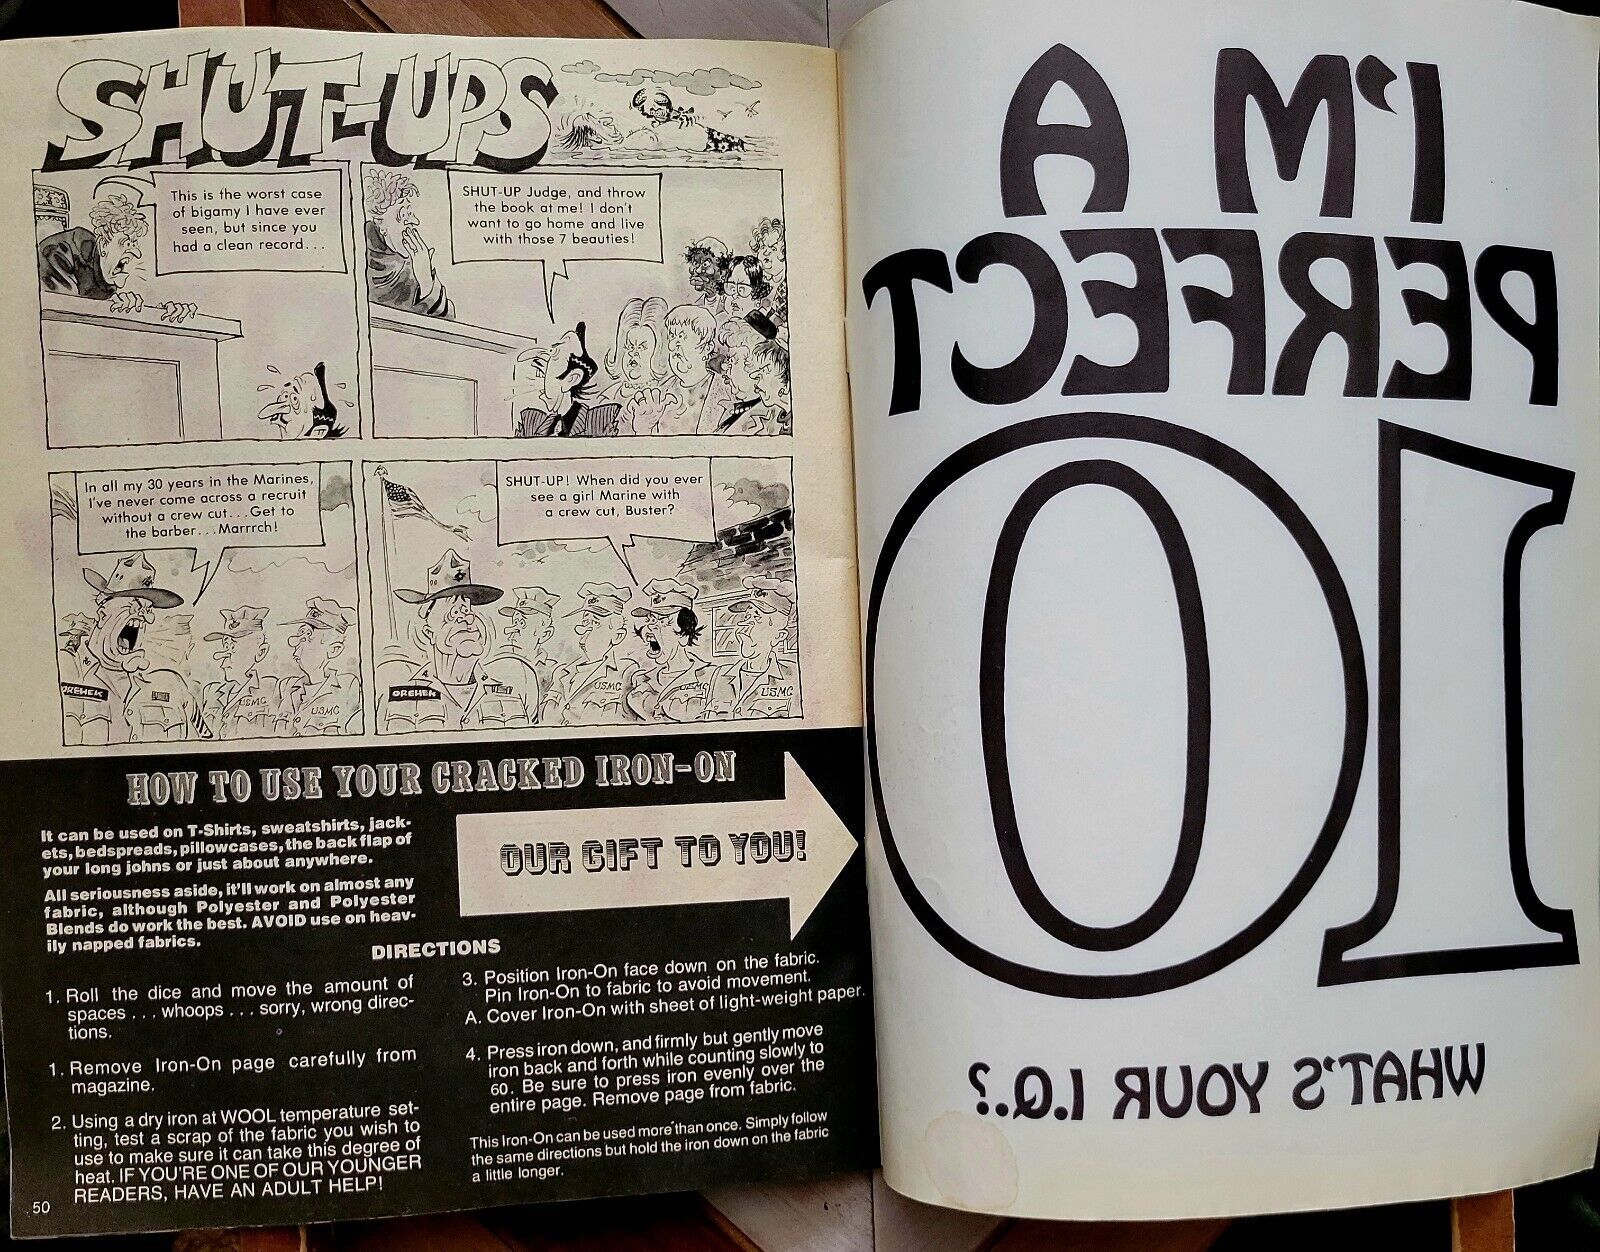 SHUT-UPS
This is the worst case
of bigamy I have ever
seen, but since you
had a clean record...
SHUT-UP Judge, and throw
the book at me! I don't
want to go home and live
with those 7 beauties!
In all my 30 years in the Marines,
I've never come across a recruit
without a crew cut...Get to
the barber...Marrrch!
OREHEK
USMC
USMC
SHUT-UP! When did you ever
see a girl Marine with
a crew cut, Buster?
OREHEK
USMC
USMC
USMC
HOW TO USE YOUR CRACKED IRON-ON
It can be used on T-Shirts, sweatshirts, jack-
ets, bedspreads, pillowcases, the back flap of
your long johns or just about anywhere.
All seriousness aside, it'll work on almost any
fabric, although Polyester and Polyester
Blends do work the best. AVOID use on heav-
ily napped fabrics.
OUR GIFT TO YOU!
DIRECTIONS
1. Roll the dice and move the amount of
spaces . . . whoops . . . sorry, wrong direc-
tions.
1. Remove Iron-On page carefully from
magazine.
2. Using a dry iron at WOOL temperature set-
ting, test a scrap of the fabric you wish to
use to make sure it can take this degree of
heat. IF YOU'RE ONE OF OUR YOUNGER
READERS, HAVE AN ADULT HELP!
3. Position Iron-On face down on the fabric.
Pin Iron-On to fabric to avoid movement.
A. Cover Iron-On with sheet of light-weight paper.
4. Press iron down, and firmly but gently move
iron back and forth while counting slowly to
60. Be sure to press iron evenly over the
entire page. Remove page from fabric.
This Iron-On can be used more than once. Simply follow
the same directions but hold the iron down on the fabric
a little longer.
50
I'M A
PERFECT
10
WHAT'S YOUR I.Q.?